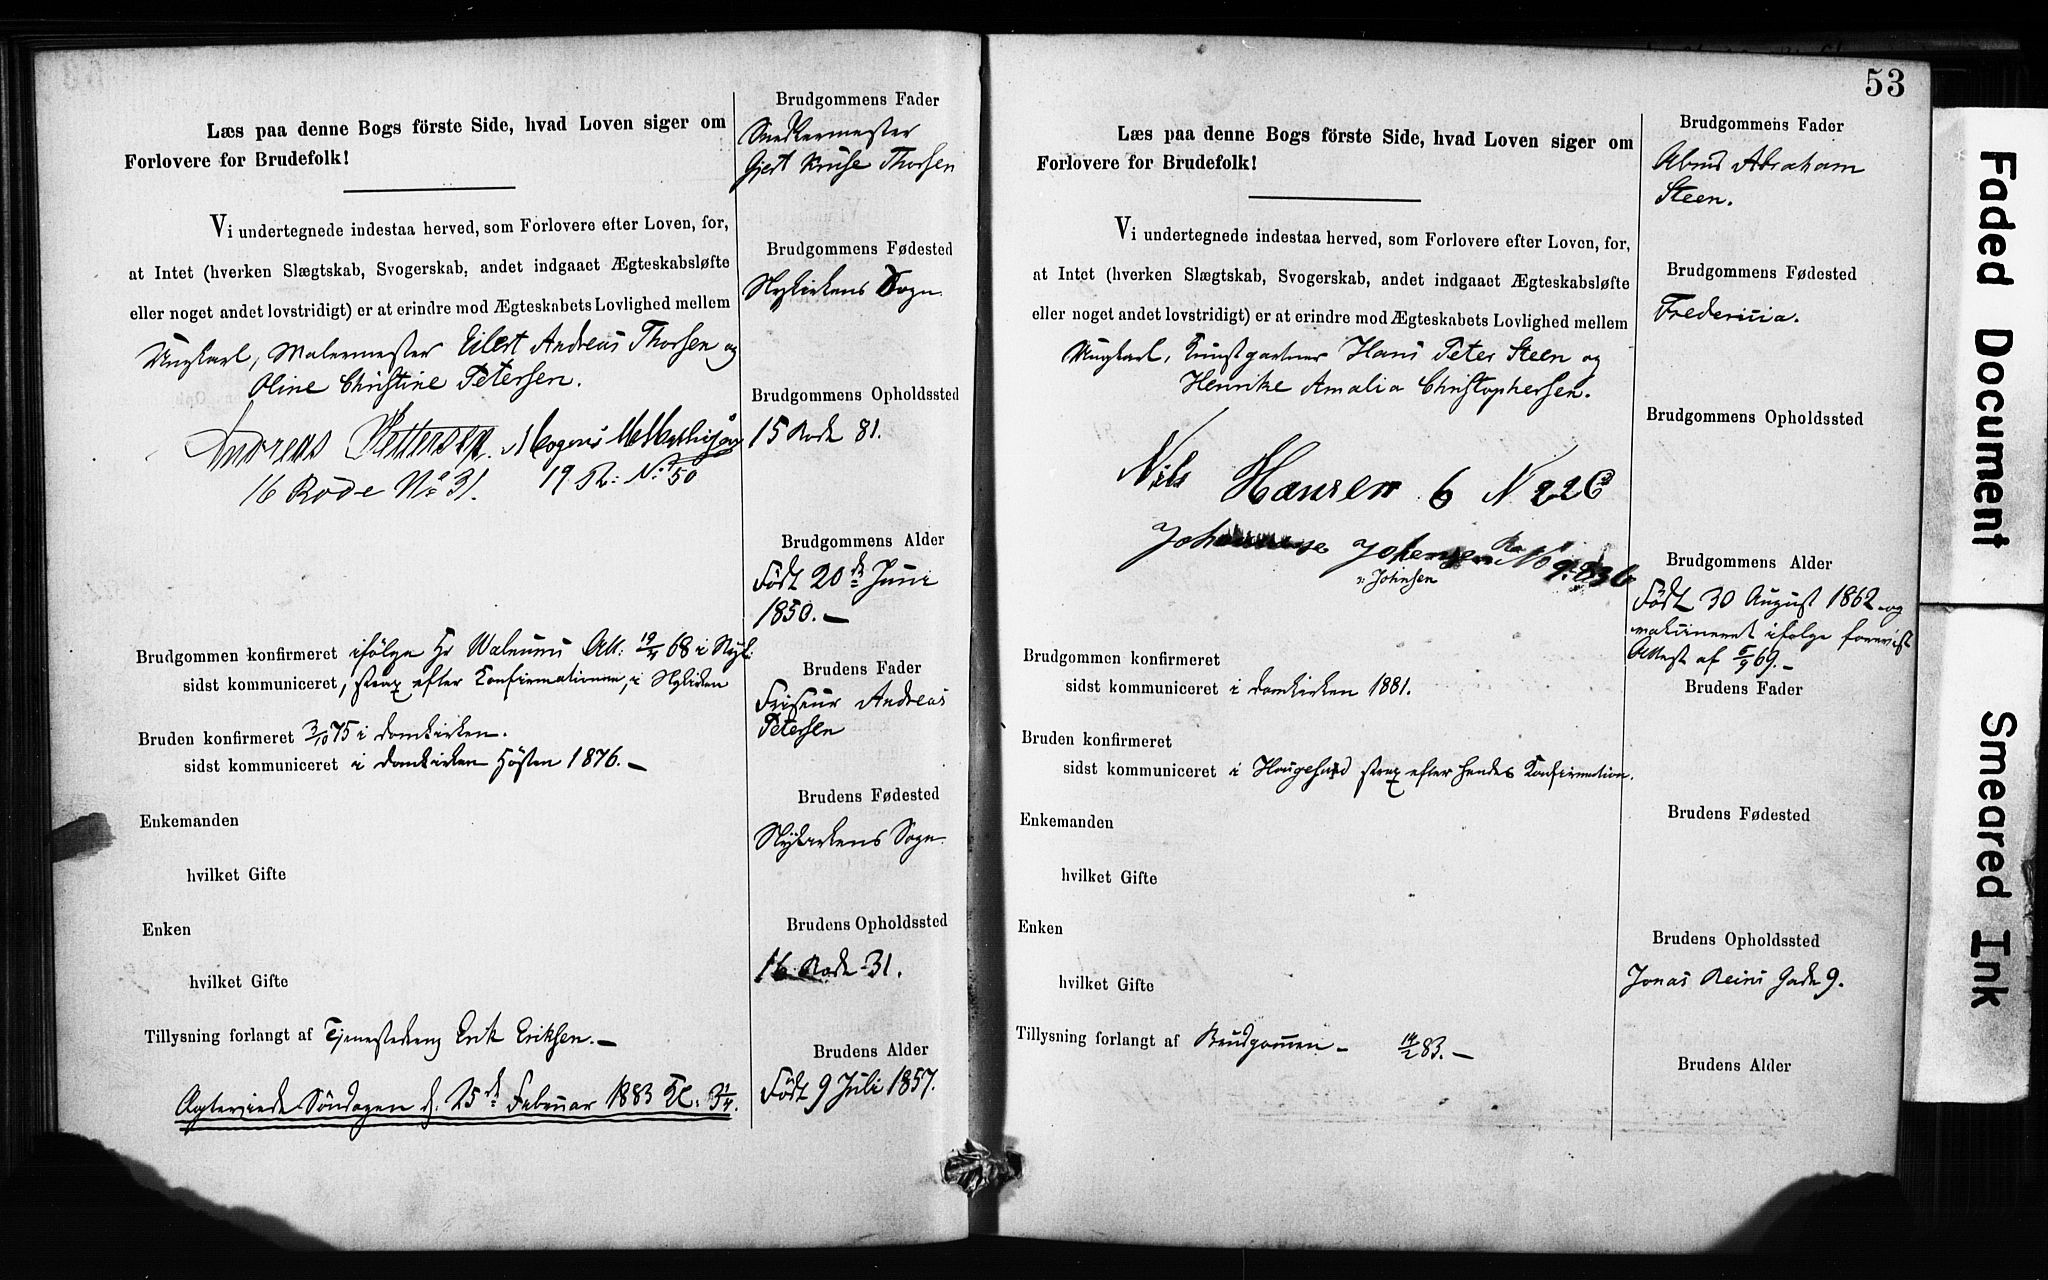 Læs paa denne Bogs förste Side, hvad Loven siger om
Forlovere for Brudefolk!
Vi undertegnede indestaa herved, som Forlovere efter Loven, for,
at Intet (hverken Slægtskab, Svogerskab, andet indgaaet Ægteskabsløfte
eller noget andet lovstridigt) er at erindre mod Ægteskabets Lovlighed mellem
Ungkarl, Malermester Eilert Andreas Thorsen og
Oline Christine Petersen.
Andreas Pettersen. Mogens
16 Rode No 31. 19 R: No 50
Brudgommen konfirmeret ifölge Hr Walnums Att: 19/4 68 i Nyk:
sidst kommuniceret, strax efter Konfirmationen, i Nykirken
Bruden konfirmeret 3/10 75 i Domkirken.
sidst kommuniceret i Domkirken Hösten 1876. —
Enkemanden
hvilket Gifte
Enken
hvilket Gifte
Tillysning forlangt af Tjenestedreng Erik Eriksen. —
Agteviede Söndagen d. 25de Februar 1883 Kl: 3 1/4.
Brudgommens Fader
Snedkermester
Gjert Kruse Thorsen
Brudgommens Fødested
Nykirkens Sogn.
Brudgommens Opholdssted
15 Rode 81.
Brudgommens Alder
Född 20de Juni
1850. —
Brudens Fader
Friseur Andreas
Petersen
Brudens Fødested
Nykirkens Sogn.
Brudens Opholdssted
16 Rode 31.
Brudens Alder
Födt 9 Juli 1857.
53
Læs paa denne Bogs förste Side, hvad Loven siger om
Forlovere for Brudefolk!
Vi undertegnede indestaa herved, som Forlovere efter Loven, for,
at Intet (hverken Slægtskab, Svogerskab, andet indgaaet Ægteskabsløfte
eller noget andet lovstridigt) er at erindre mod Ægteskabets Lovlighed mellem
Ungkarl, Kunstgartner Hans Peter Steen og
Henrike Amalia Christophersen.
Nils Hansen 6 N 22 C
Johannes Johensen Ro No
: Johnsen
Brudgommen konfirmeret
sidst kommuniceret i Domkirken 1881.
Bruden konfirmeret
sidst kommuniceret i Haugesund strax efter hendes Konfirmation.
Enkemanden
hvilket Gifte
Enken
hvilket Gifte
Tillysning forlangt af Brudgommen — 14/2 83. —
Brudgommens Fader
Abraham
Steen.
Brudgommens Fødested
Fredericia.
Brudgommens Opholdssted
Brudgommens Alder
Födt 30 August 1862 og
vakcineret ifölge forevist
Attest af 5/9 69. —
Brudens Fader
Brudens Fødested
Brudens Opholdssted
Jonas Reins Gade 9.
Brudens Alder
Faded Document
Smeared Ink